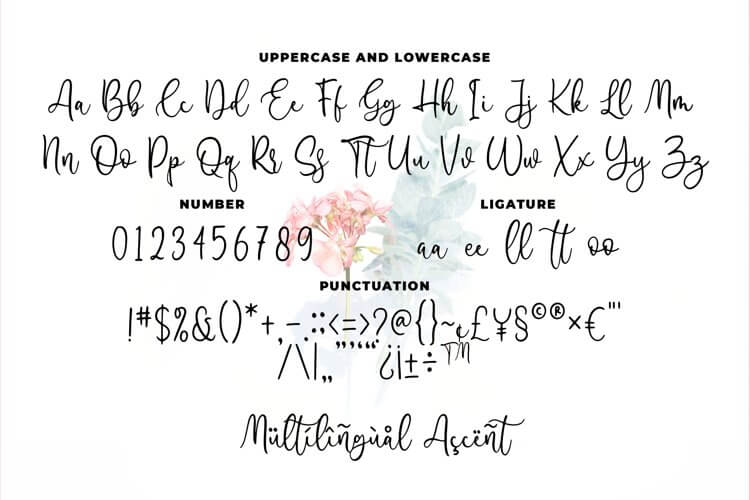 UPPERCASE AND LOWERCASE
Aa Bb Cc Dd Ee Ff Gg Hh Ii Jj Kk Ll Mm
Nn Oo Pp Qq Rr Ss Tt Uu Vv Ww Xx Yy Zz
NUMBER
0123456789
LIGATURE
aa ee ll tt oo
PUNCTUATION
!#$%&()*+,-.:;<=>?@{}~¢£¥§©®×€"'
/\|„ ”’‘“ ¿¡±÷™
Mültílîñgùål Aşçëñt